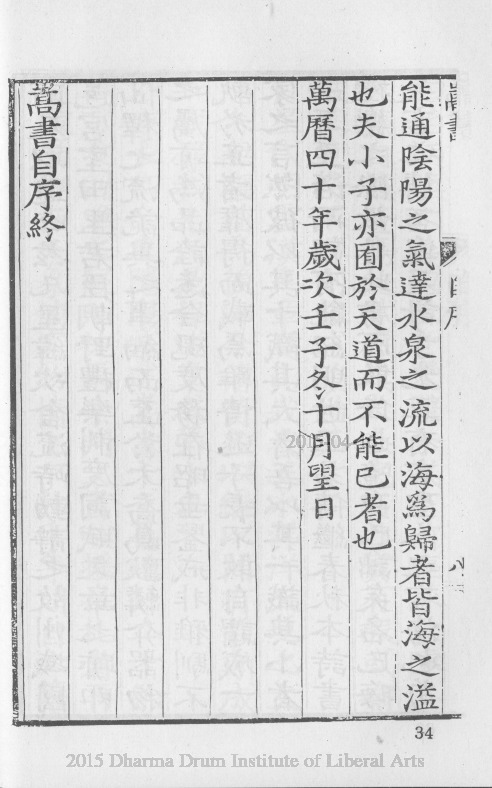 嵩書
自序
八
能通陰陽之氣達水泉之流以海爲歸者皆海之溢
也夫小子亦囿於天道而不能已者也
萬曆四十年歲次壬子冬十月朢日
嵩書自序終
34
2015 Dharma Drum Institute of Liberal Arts